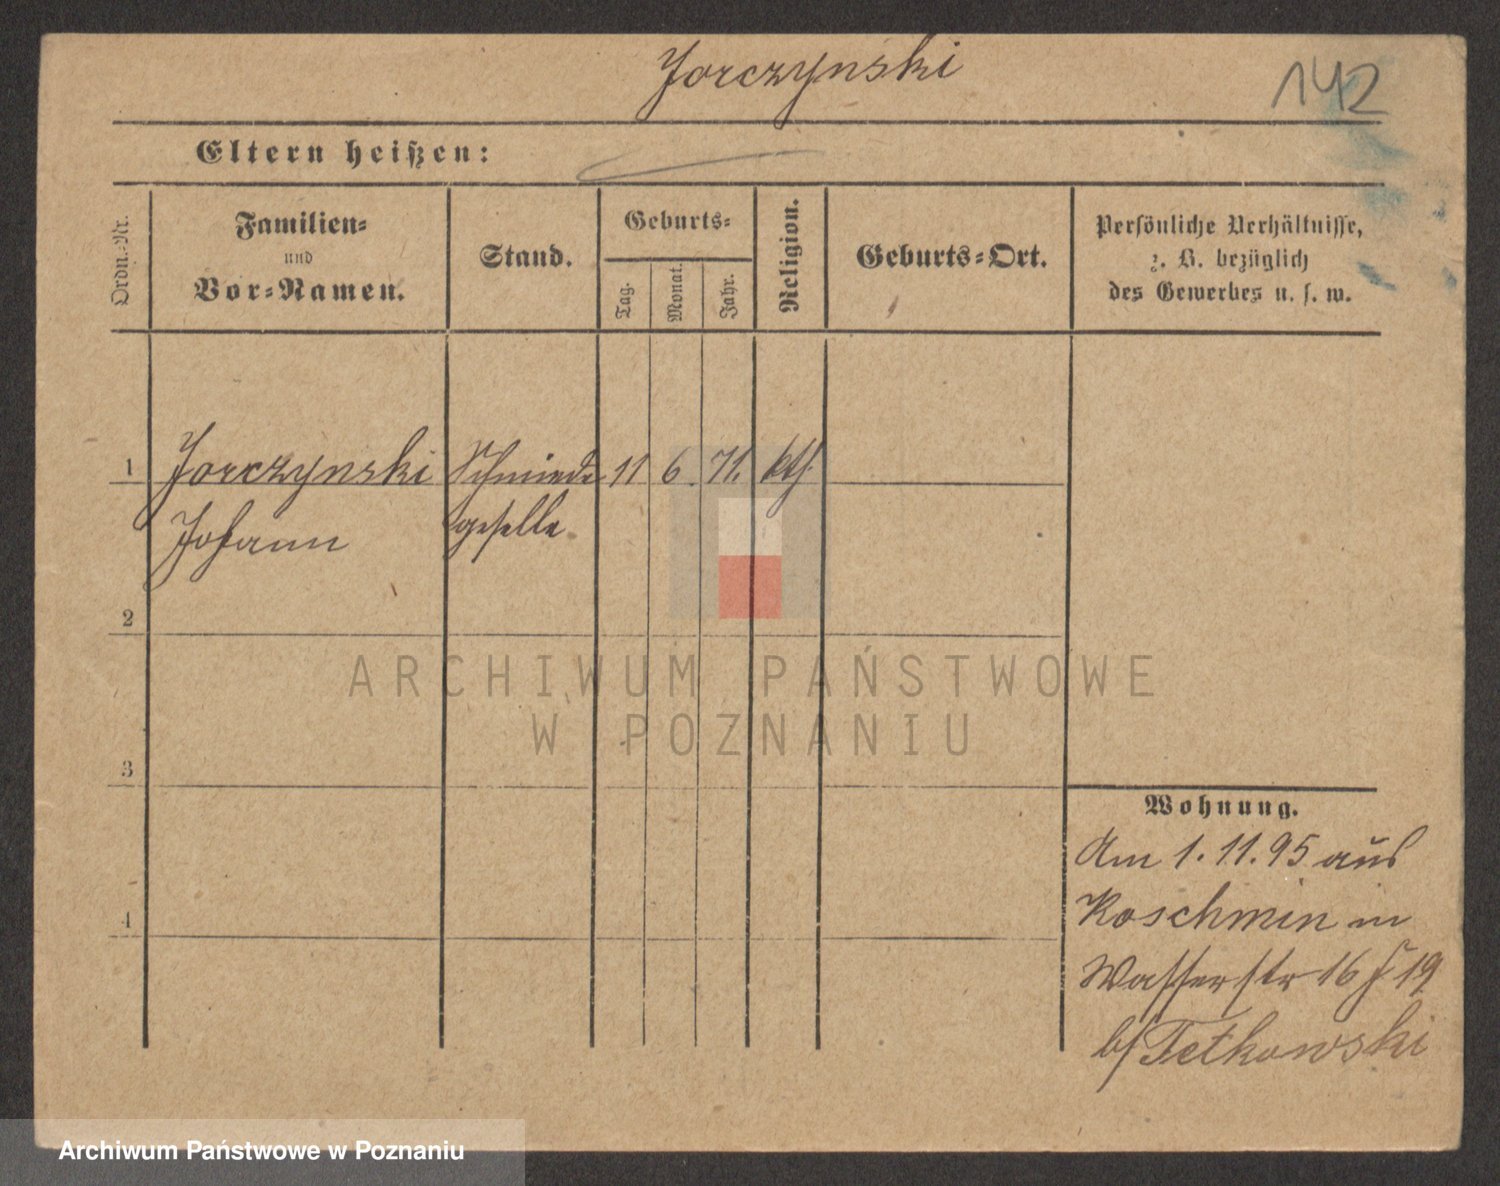 Jorczynski
142
Eltern heißen:
Ordn.-Nr.
Familien-
und
Vor-Namen.
Stand.
Geburts-
Tag.
Monat.
Jahr.
Religion.
Geburts-Ort.
Persönliche Verhältnisse,
z. B. bezüglich
des Gewerbes u. s. w.
1 Jorczynski Schmiede 11 6. 71. kth.
Johann geselle.
2
3
4
Wohnung.
Am 1. 11. 95 aus
Koschmin in
Wasserstr 16 / 19
b/ Tetkowski
ARCHIWUM PAŃSTWOWE
W POZNANIU
Archiwum Państwowe w Poznaniu